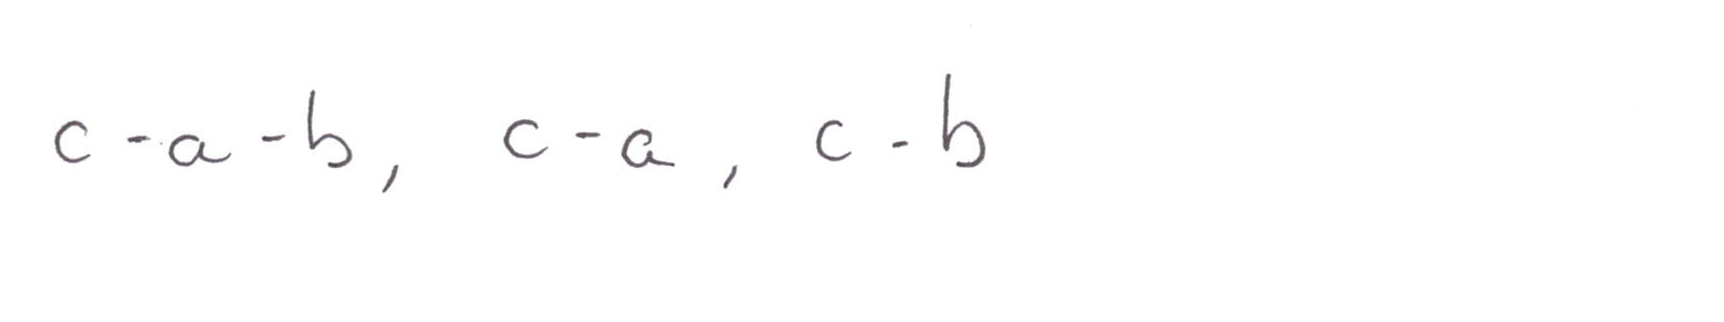 c-a-b, c-a, c-b